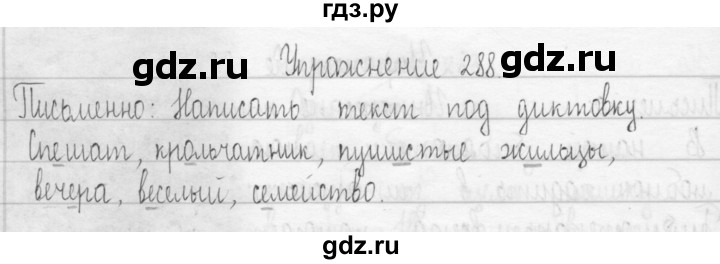 гдз.ру
gdz.ru gdz.ru
Упражнение 288.
Письменно: Написать текст под диктовку.
Спешат, крольчатник, пушистые жильцы,
вечера, веселый, семейство.
gdz.ru